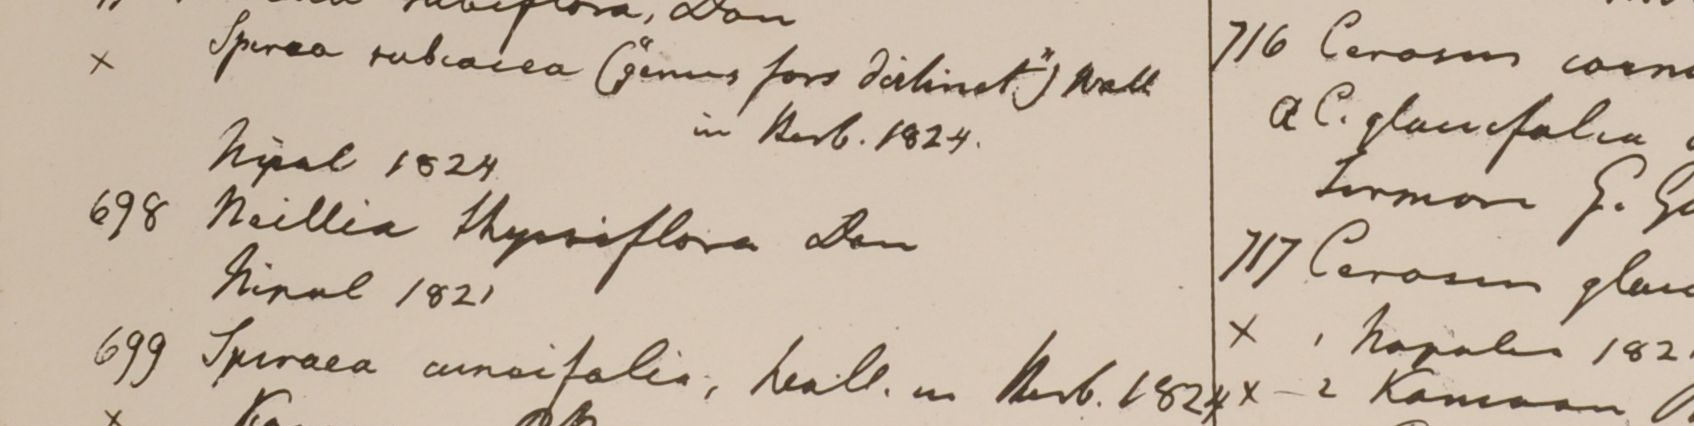 rubiflora, Don
x Spiraea rubacea ("genus fors distinct") Wall
in Herb. 1824.
Nipal 1824
698 Neillia thyrsiflora Don
Nipal 1821
699 Spiraea cuneifolia, Wall. in Herb. 1824
x
716 Cerasus
a C. glaucifolia
Sirmore G.
717 Cerasus glau
x 1 Napalia 182
x - 2 Kamaon